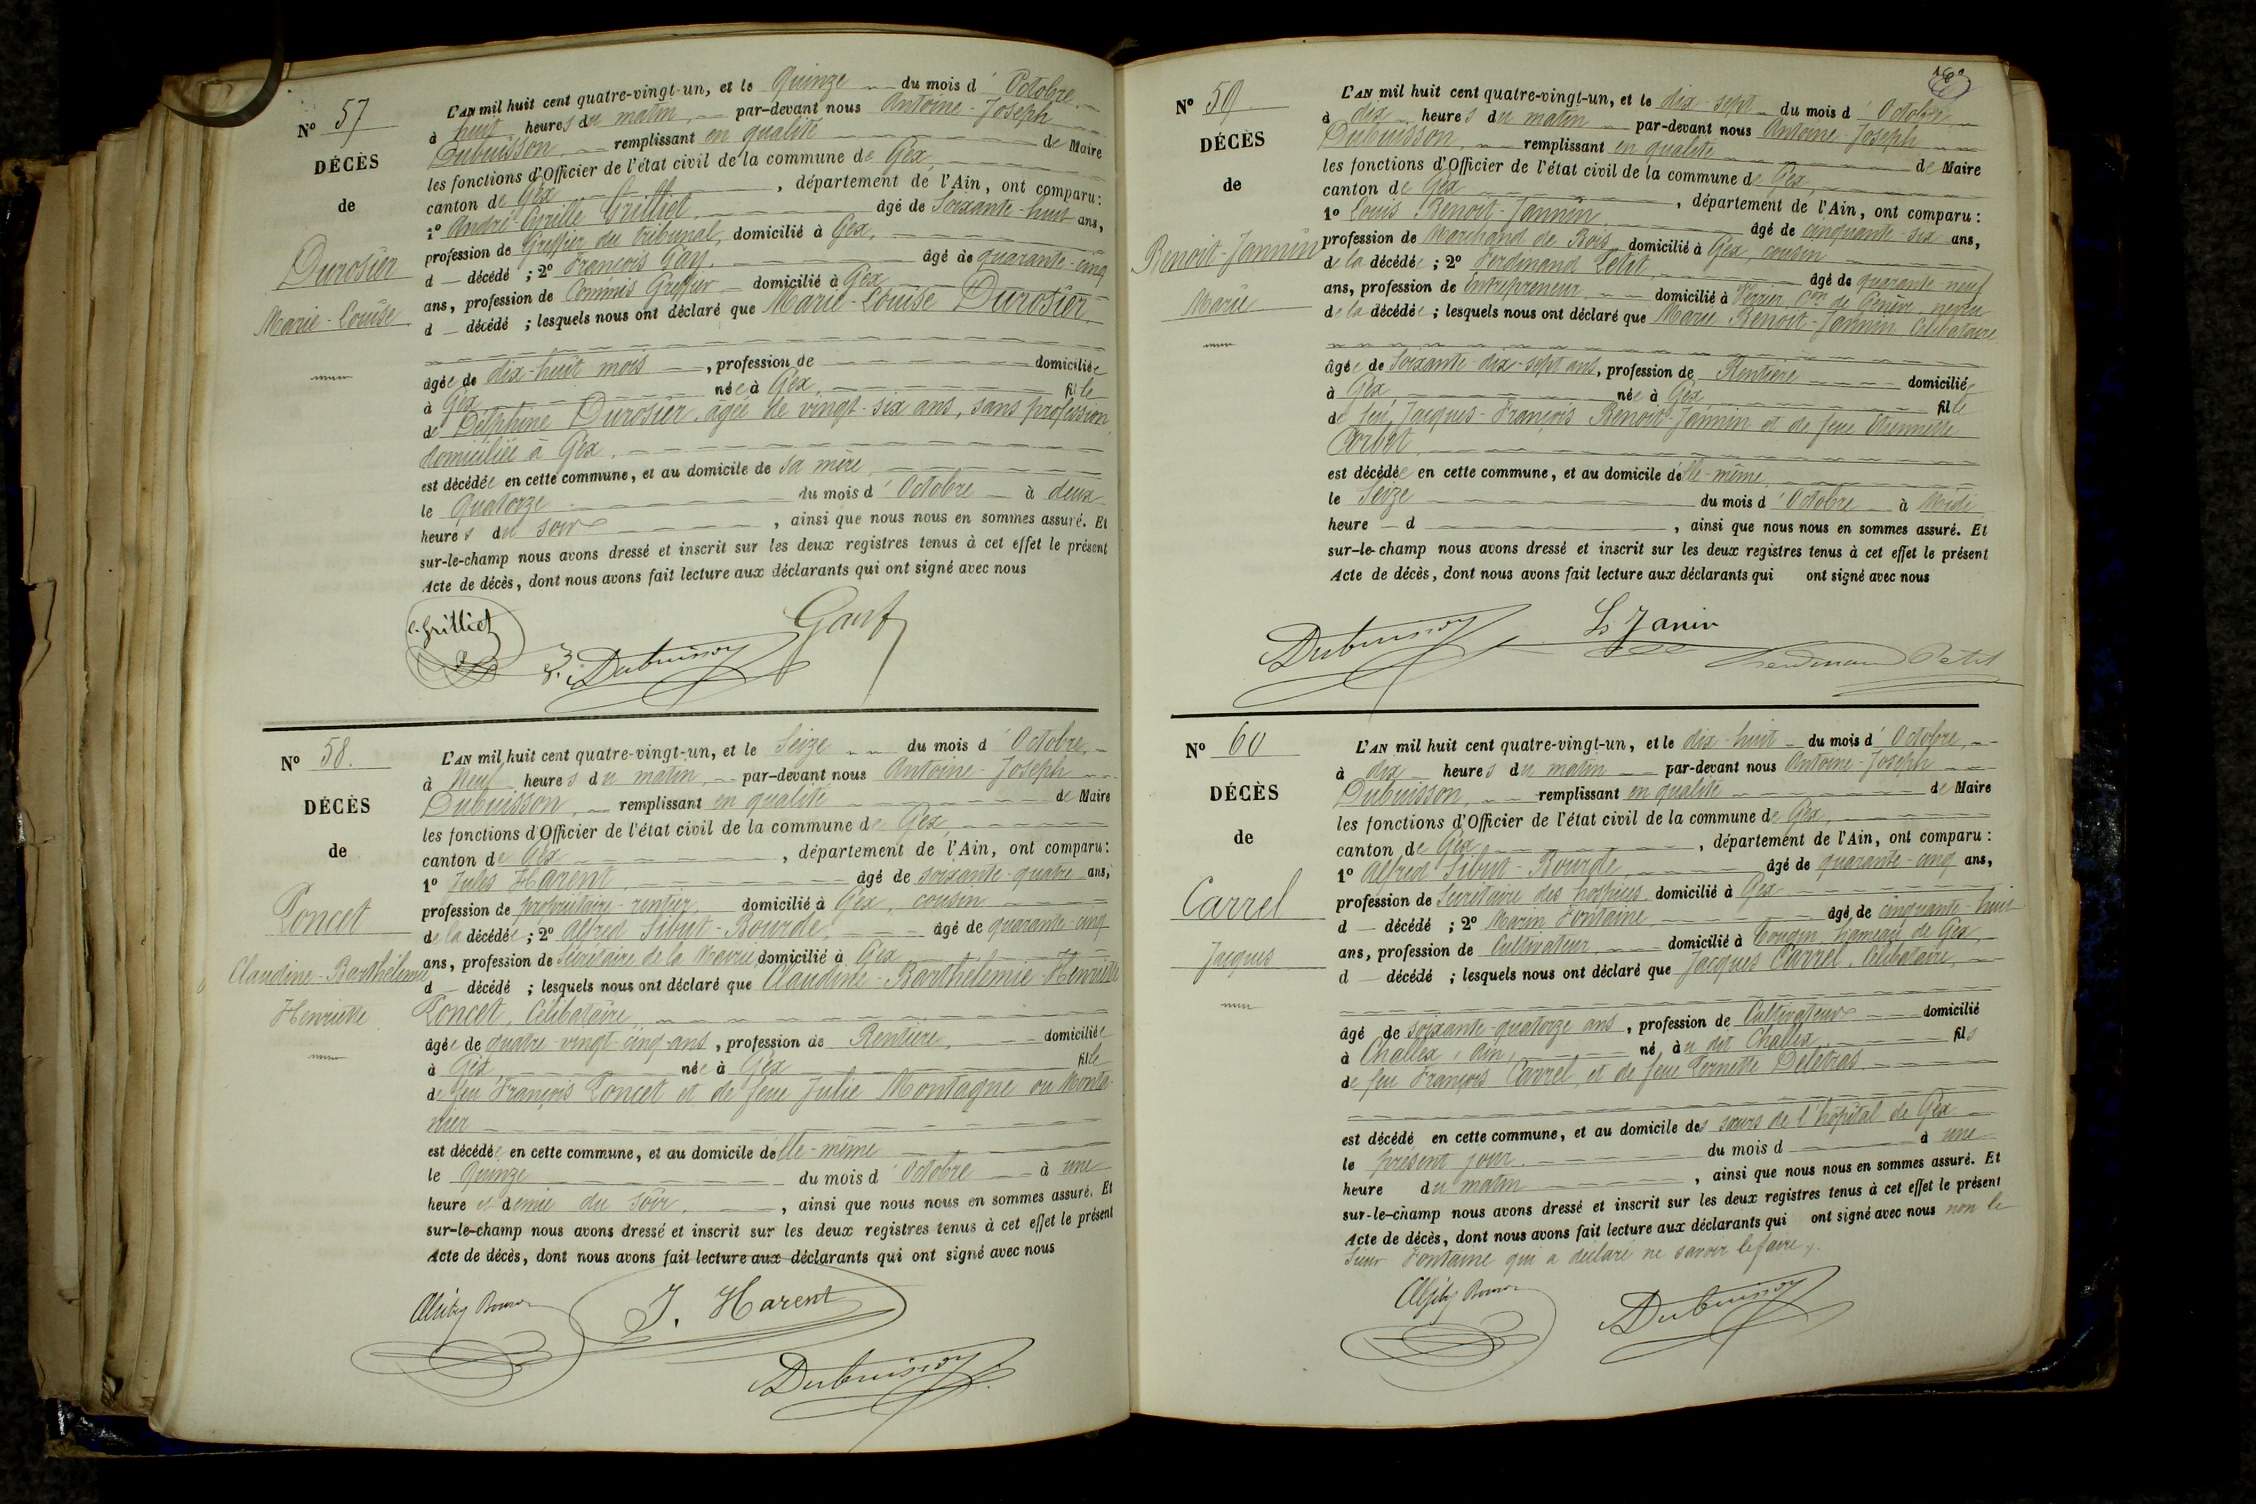 Nº 57
DÉCÈS
de
Durosier
Marie-Louise
L'AN mil huit cent quatre-vingt-un, et le Quinze du mois d'Octobre,
à huit heures du matin, par-devant nous Antoine-Joseph
Dubuisson, remplissant en qualité de Maire
les fonctions d'Officier de l'état civil de la commune de Gex,
canton de Gex, département de l'Ain, ont comparu:
1º André-Cyrille Grilliet, âgé de Soixante-huit ans,
profession de Greffier du tribunal, domicilié à Gex,
d décédé ; 2º François Gay, âgé de quarante-cinq
ans, profession de Commis Greffier domicilié à Gex
d décédé ; lesquels nous ont déclaré que Marie-Louise Durosier,
âgée de dix-huit mois, profession de domiciliée
à Gex née à Gex, fille
de Delphine Durosier, âgée de vingt-six ans, sans profession,
domiciliée à Gex,
est décédée en cette commune, et au domicile de sa mère,
le Quatorze du mois d'Octobre à deux
heures du soir, ainsi que nous nous en sommes assuré. Et
sur-le-champ nous avons dressé et inscrit sur les deux registres tenus à cet effet le présent
Acte de décès, dont nous avons fait lecture aux déclarants qui ont signé avec nous
c. Grilliet
Dubuisson
Nº 58.
DÉCÈS
de
Poncet
Claudine-Barthélemie
Henriette
L'AN mil huit cent quatre-vingt-un, et le Seize du mois d'Octobre,
à Neuf heures du matin, par-devant nous Antoine-Joseph
Dubuisson, remplissant en qualité de Maire
les fonctions d'Officier de l'état civil de la commune de Gex,
canton de Gex, département de l'Ain, ont comparu:
1º Jules Harent, âgé de soixante-quatre ans,
profession de propriétaire-rentier, domicilié à Gex, cousin
de la décédée ; 2º Alfred Sibut-Bourde, âgé de quarante-cinq
ans, profession de Secrétaire de la Mairie, domicilié à Gex
d décédé ; lesquels nous ont déclaré que Claudine-Barthélemie-Henriette
Poncet, Célibataire,
âgée de quatre-vingt-cinq ans, profession de Rentière, domiciliée
à Gex née à Gex fille
de feu François Poncet et de feue Julie Montagne ou Monta-
nier
est décédée en cette commune, et au domicile d'elle-même
le Quinze du mois d'Octobre à une
heure et demie du soir, ainsi que nous nous en sommes assuré. Et
sur-le-champ nous avons dressé et inscrit sur les deux registres tenus à cet effet le présent
Acte de décès, dont nous avons fait lecture aux déclarants qui ont signé avec nous
J. Harent
Dubuisson
Nº 59
DÉCÈS
de
Benoit-Jannin
Marie
L'AN mil huit cent quatre-vingt-un, et le dix-sept du mois d'Octobre
à dix heures du matin par-devant nous Antoine-Joseph
Dubuisson, remplissant en qualité de Maire
les fonctions d'Officier de l'état civil de la commune de Gex,
canton de Gex, département de l'Ain, ont comparu:
1º Louis Benoit-Jannin âgé de cinquante-six ans,
profession de Marchand de Bois domicilié à Gex, cousin
de la décédée ; 2º Ferdinand Petit, âgé de quarante-neuf
ans, profession de Entrepreneur domicilié à Verrier Con de Genève, neveu
de la décédée ; lesquels nous ont déclaré que Marie Benoit-Jannin Célibataire
âgée de Soixante-dix-sept ans, profession de Rentière domiciliée
à Gex née à Gex fille
de feu Jacques-François Benoit-Jannin et de feue Etiennette
est décédée en cette commune, et au domicile d'elle-même
le Seize du mois d'Octobre à Midi
heure d, ainsi que nous nous en sommes assuré. Et
sur-le-champ nous avons dressé et inscrit sur les deux registres tenus à cet effet le présent
Acte de décès, dont nous avons fait lecture aux déclarants qui ont signé avec nous
Dubuisson
Ls Janin
Ferdinand Petit
Nº 60
DÉCÈS
de
Carrel
Jacques
L'AN mil huit cent quatre-vingt-un, et le dix-huit du mois d'Octobre,
à dix heures du matin par-devant nous Antoine-Joseph
Dubuisson, remplissant en qualité de Maire
les fonctions d'Officier de l'état civil de la commune de Gex,
canton de Gex, département de l'Ain, ont comparu:
1º Alfred Sibut-Bourde, âgé de quarante-cinq ans,
profession de Secrétaire des hospices, domicilié à Gex
d décédé ; 2º Marin Fontaine âgé de cinquante-huit
ans, profession de Cultivateur, domicilié à Tougin hameau de Gex,
d décédé ; lesquels nous ont déclaré que Jacques Carrel, Célibataire,
âgé de soixante-quatorze ans, profession de Cultivateur domicilié
à Challex, Ain, né au dit Challex, fils
de feu François Carrel, et de feue Pernette Deletras,
est décédé en cette commune, et au domicile des sœurs de l'hôpital de Gex
le présent jour du mois d à une
heure du matin, ainsi que nous nous en sommes assuré. Et
sur-le-champ nous avons dressé et inscrit sur les deux registres tenus à cet effet le présent
Acte de décès, dont nous avons fait lecture aux déclarants qui ont signé avec nous non le
Sieur Fontaine qui a déclaré ne savoir le faire.
Dubuisson